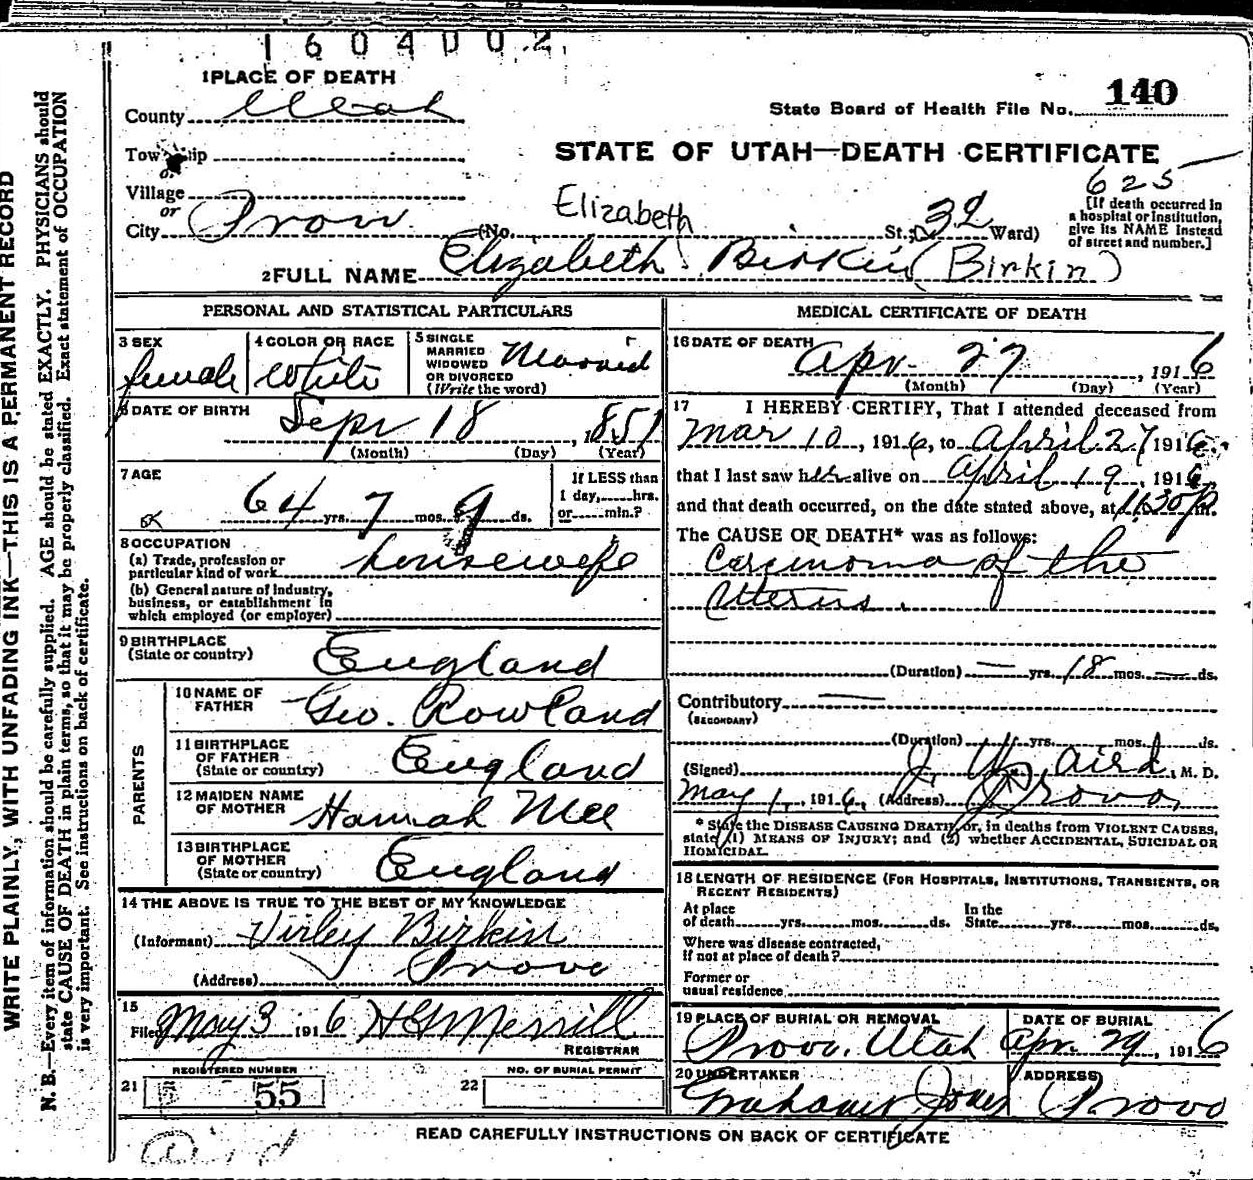 1604002
1 PLACE OF DEATH
County Utah
State Board of Health File No. 140
Township
or
STATE OF UTAH—DEATH CERTIFICATE
625
Village
or
City Provo (No. Elizabeth St.; 3d Ward)
[If death occurred in
a hospital or institution,
give its NAME instead
of street and number.]
2 FULL NAME Elizabeth Birkin (Birkin)
PERSONAL AND STATISTICAL PARTICULARS
3 SEX female
4 COLOR OR RACE White
5 SINGLE
MARRIED
WIDOWED
OR DIVORCED
(Write the word) Married
6 DATE OF BIRTH
Sept 18, 1851
(Month) (Day) (Year)
7 AGE
64 yrs. 7 mos. 9 ds.
If LESS than
1 day, hrs.
or min.?
8 OCCUPATION
(a) Trade, profession or
particular kind of work housewife
(b) General nature of industry,
business, or establishment in
which employed (or employer)
9 BIRTHPLACE
(State or country) England
PARENTS
10 NAME OF
FATHER Geo. Rowland
11 BIRTHPLACE
OF FATHER
(State or country) England
12 MAIDEN NAME
OF MOTHER Hannah Mee
13 BIRTHPLACE
OF MOTHER
(State or country) England
14 THE ABOVE IS TRUE TO THE BEST OF MY KNOWLEDGE
(Informant) Virley Birkin
(Address) Provo
15
Filed May 3 1916 H G Merrill
REGISTRAR
REGISTERED NUMBER
21 55
NO. OF BURIAL PERMIT
22
MEDICAL CERTIFICATE OF DEATH
16 DATE OF DEATH
Apr. 27, 1916
(Month) (Day) (Year)
17 I HEREBY CERTIFY, That I attended deceased from
Mar 10, 1916, to April 27 1916.
that I last saw her alive on April 19, 1916,
and that death occurred, on the date stated above, at 1:30 P m.
The CAUSE OF DEATH* was as follows:
Carcinoma of the
Uterus.
(Duration) — yrs. 18 mos. — ds.
Contributory —
(SECONDARY)
(Duration) yrs. mos. ds.
(Signed) J. W. Aird, M. D.
May 1, 1916, (Address) Provo
* State the DISEASE CAUSING DEATH, or, in deaths from VIOLENT CAUSES,
state (1) MEANS OF INJURY; and (2) whether ACCIDENTAL, SUICIDAL OR
HOMICIDAL.
18 LENGTH OF RESIDENCE (FOR HOSPITALS, INSTITUTIONS, TRANSIENTS, OR
RECENT RESIDENTS)
At place
of death yrs. mos. ds.
In the
State yrs. mos. ds.
Where was disease contracted,
if not at place of death?
Former or
usual residence
19 PLACE OF BURIAL OR REMOVAL
Provo, Utah
DATE OF BURIAL
Apr. 29, 1916
20 UNDERTAKER
Jones
ADDRESS
Provo
READ CAREFULLY INSTRUCTIONS ON BACK OF CERTIFICATE
Aird
WRITE PLAINLY, WITH UNFADING INK—THIS IS A PERMANENT RECORD
N. B.—Every item of information should be carefully supplied. AGE should be stated EXACTLY. PHYSICIANS should
state CAUSE OF DEATH in plain terms, so that it may be properly classified. Exact statement of OCCUPATION
is very important. See instructions on back of certificate.